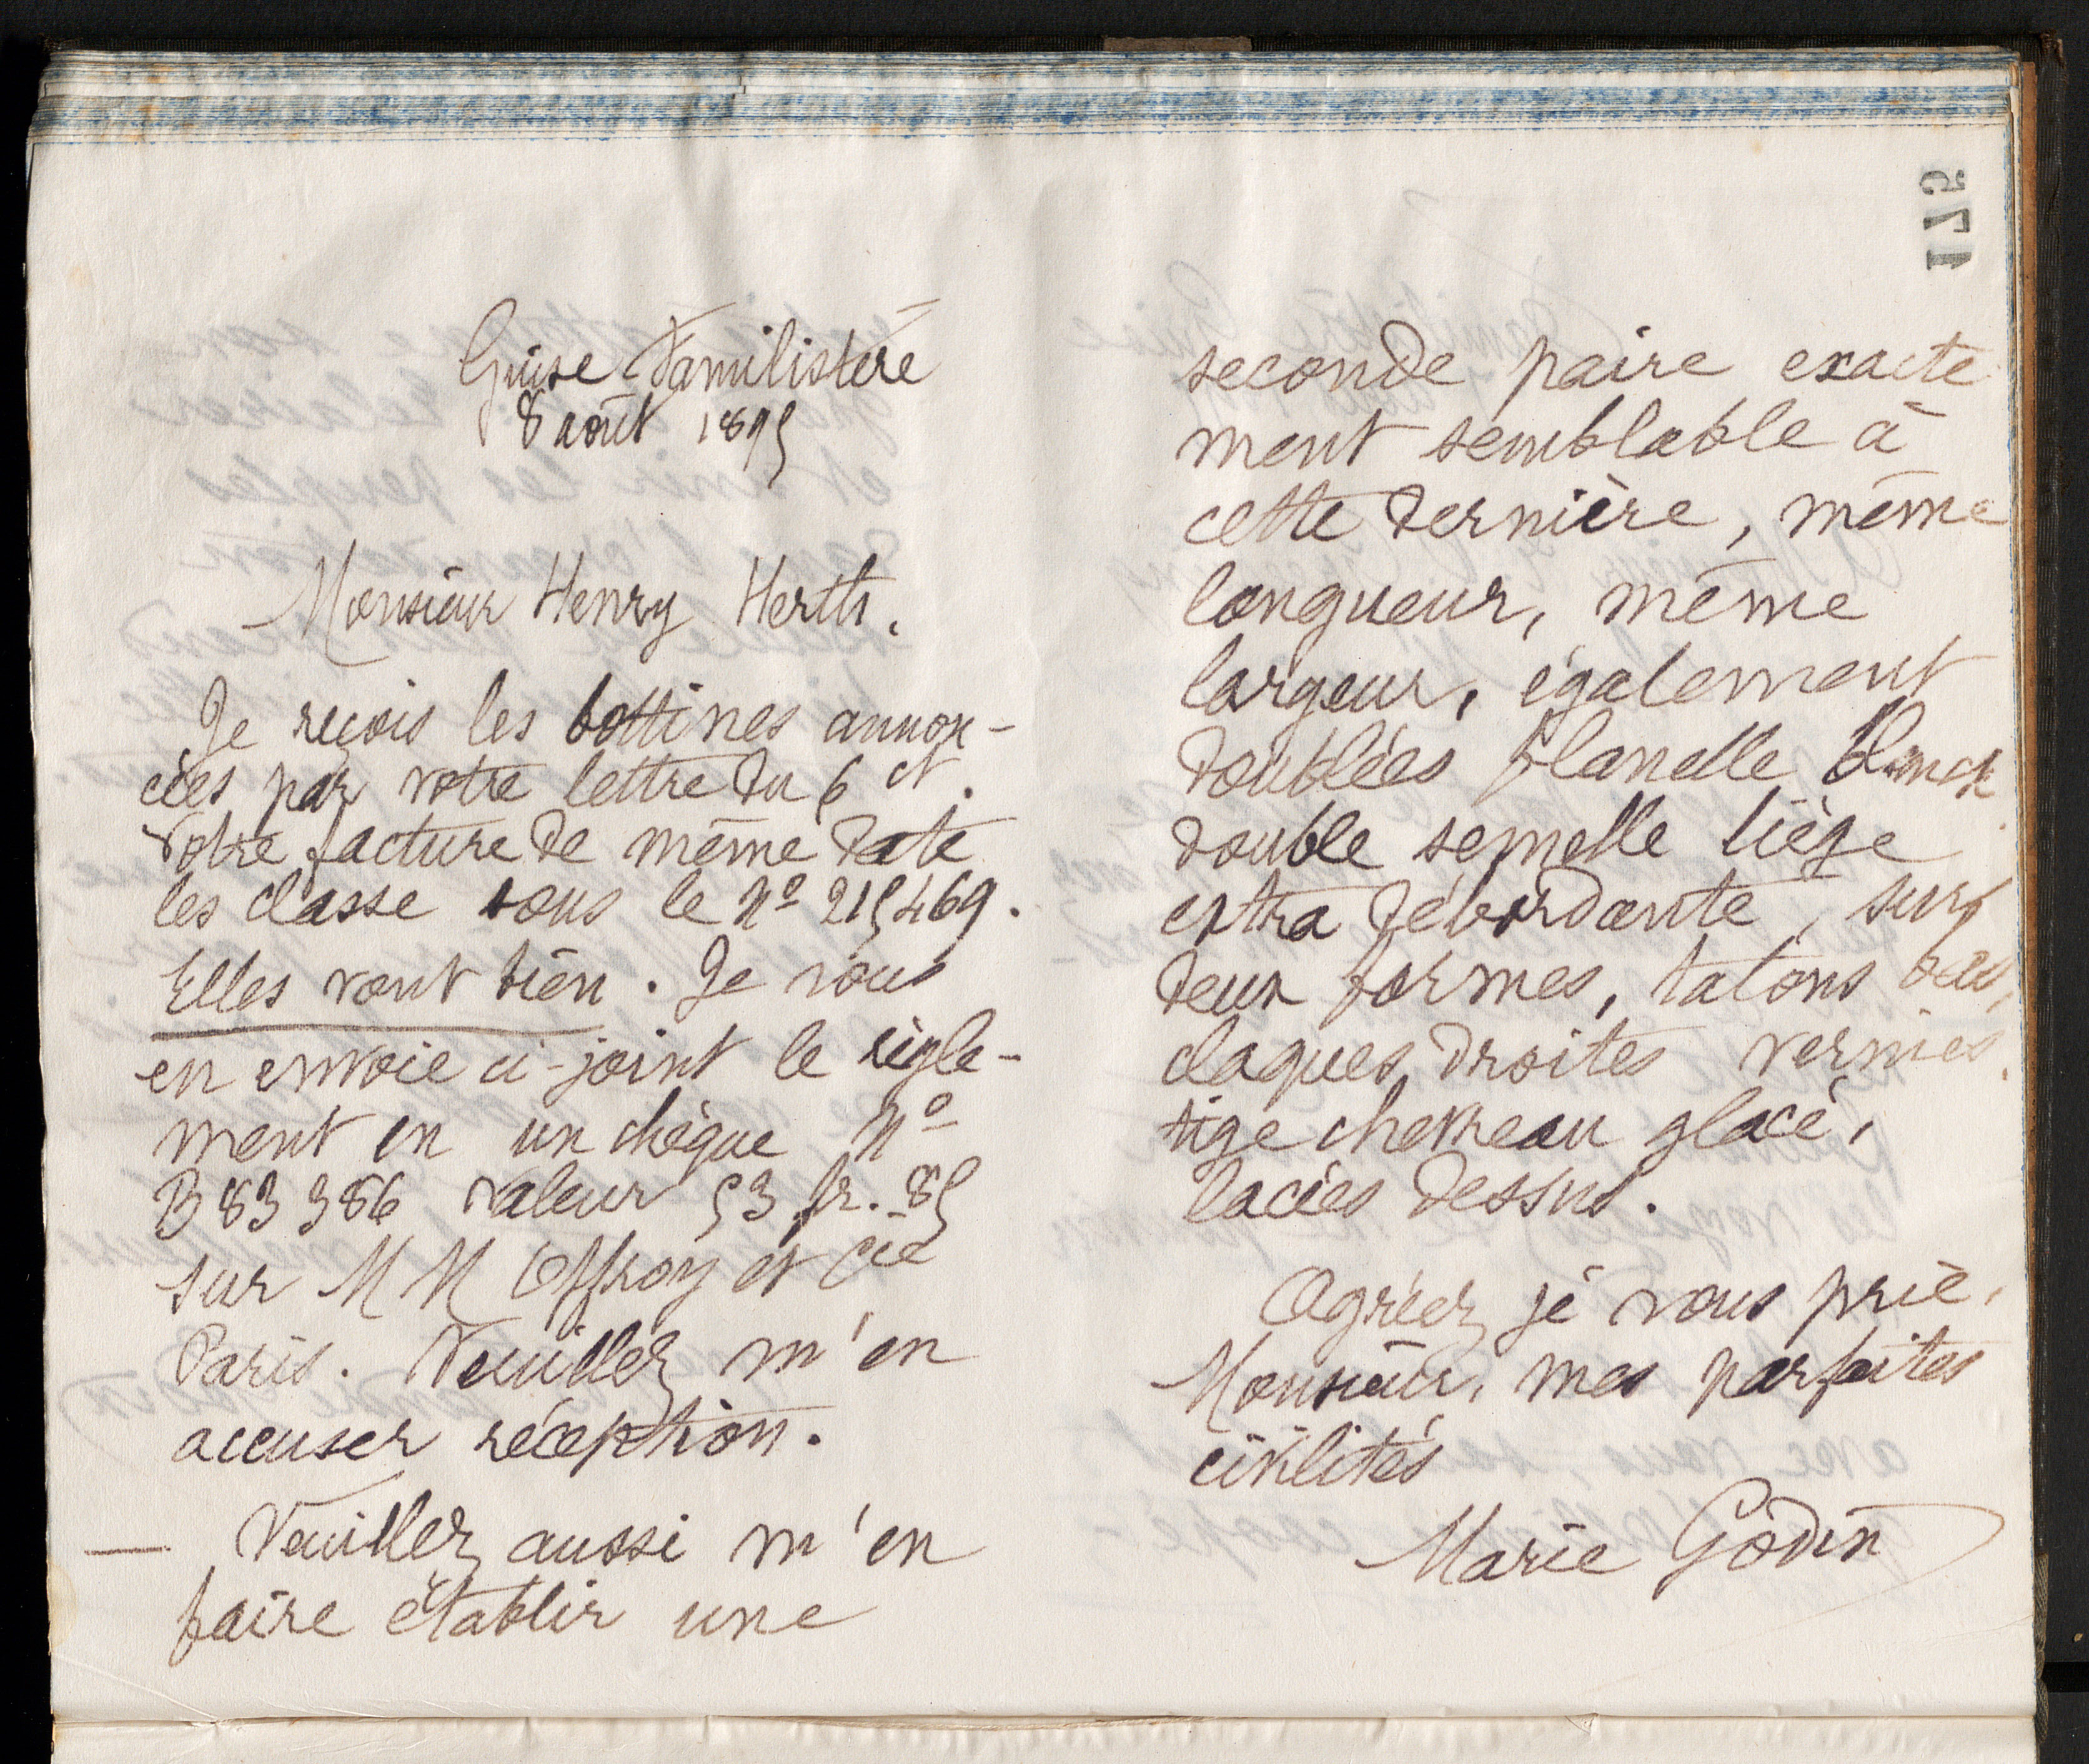 Guise Familistère
8 août 1895
Monsieur Henry Herth.
Je reçois les bottines annon-
cées par votre lettre du 6 ct.
Votre facture de même date
les classe sous le Nº 215469.
Elles vont bien. Je vous
en envoie ci-joint le règle-
ment en un chèque Nº
B 83 386 valeur 53 fr. 85
sur MM Offroy et Cie
Paris. Veuillez m'en
accuser réception.
— Veuillez aussi m'en
faire établir une
175
seconde paire exacte
ment semblable à
cette dernière, même
longueur, même
largeur, également
doublées flanelle blanche
double semelle liège
extra débordante, sur
deux formes, talons bas,
claques droites vernies,
tige chevreau glacé,
lacées dessus.
Agréez, je vous prie,
Monsieur, mes parfaites
civilités
Marie Godin